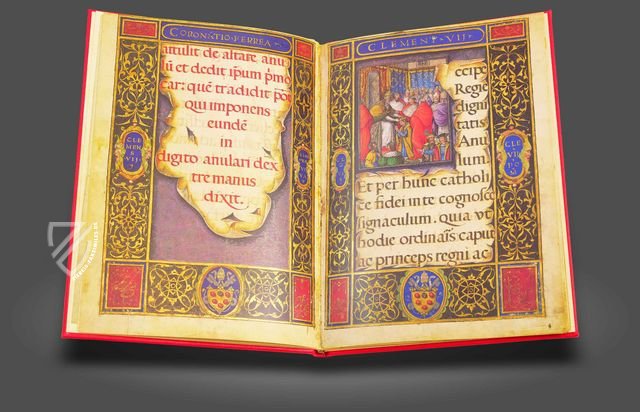 CORONATIO·FERREA
attulit de altare anu
lũ et dedit ipsum p̃mo
car: quẽ tradidit põt
qui imponens
eundẽ
in
digito anulari dex
tre manus
dixit.
CLE
MEN
S
VII
CLEMENT·VII
ccipe
Regie
digni
tatis
Anu
lum.
Et per hunc catholi
ce fidei in te cognosce
signaculum. quia vt
hodie ordinaĩs: caput
ac princeps regni ac
CLE